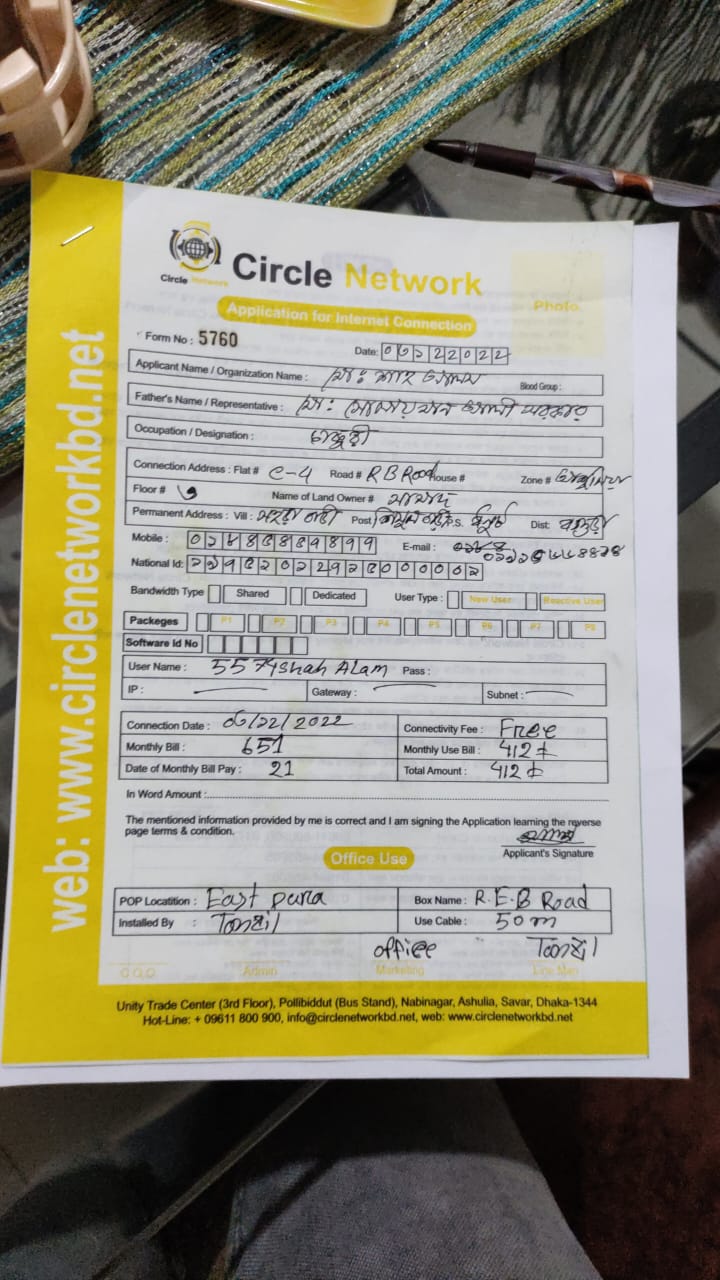 web: www.circlenetworkbd.net
Circle Network
Circle Network
Photo
Application for Internet Connection
Form No : 5760
Date:
Applicant Name / Organization Name : মো: শাহ আলম Blood Group :
Father's Name / Representative : মো: সোলায়মান আলী সরকার
Occupation / Designation : চাকুরী
Connection Address : Flat # C-4 Road # R B Road House # Zone #
Floor # Name of Land Owner #
Permanent Address : Vill : Post P.S. Dist: বগুড়া
Mobile : E-mail :
National Id:
Bandwidth Type Shared Dedicated User Type : New User Reactive User
Packeges P1 P2 P3 P4 P5 P6 P7 P8
Software Id No
User Name : 5574Shah Alam Pass :
IP : Gateway : Subnet :
Connection Date : 06/12/2022 Connectivity Fee : Free
Monthly Bill : 651 Monthly Use Bill : 412
Date of Monthly Bill Pay : 21 Total Amount : 412
In Word Amount :
The mentioned information provided by me is correct and I am signing the Application learning the reverse
page terms & condition.
Applicant's Signature
Office Use
POP Locatition : East para Box Name : R.E.B Road
Installed By : Tanzil Use Cable : 50 m
office Tanzil
C.O.O Admin Marketing Line Man
Unity Trade Center (3rd Floor), Pollibiddut (Bus Stand), Nabinagar, Ashulia, Savar, Dhaka-1344
Hot-Line: + 09611 800 900, info@circlenetworkbd.net, web: www.circlenetworkbd.net